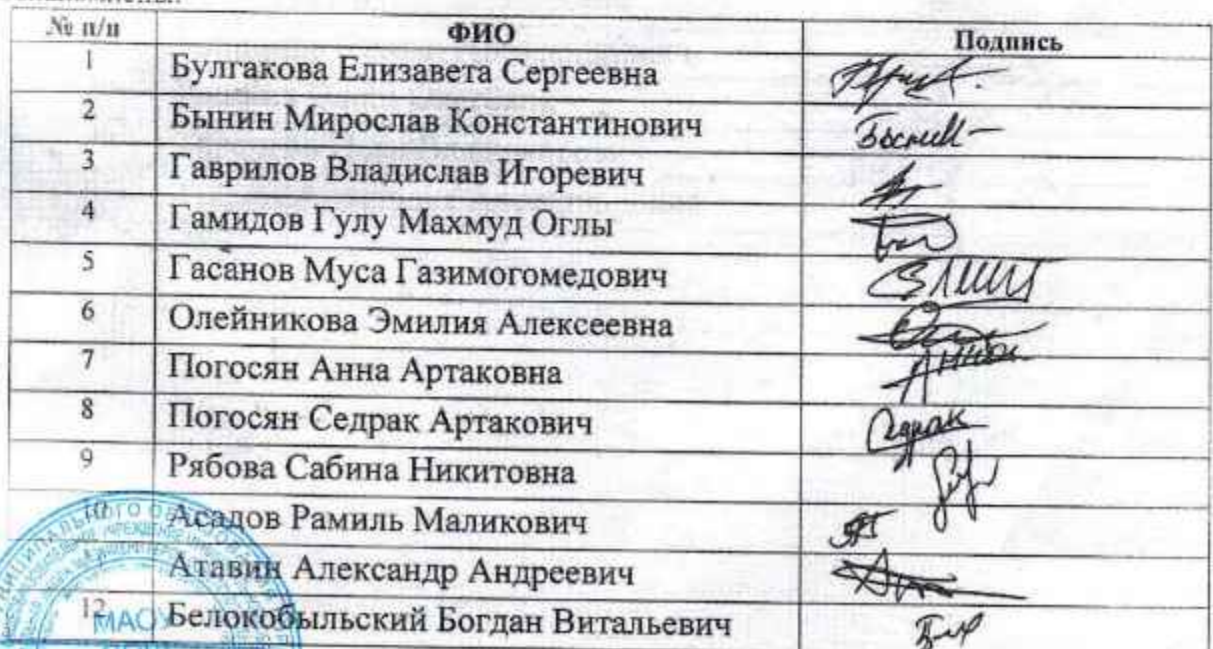 № п/п ФИО Подпись
1 Булгакова Елизавета Сергеевна
2 Бынин Мирослав Константинович
3 Гаврилов Владислав Игоревич
4 Гамидов Гулу Махмуд Оглы
5 Гасанов Муса Газимогомедович
6 Олейникова Эмилия Алексеевна
7 Погосян Анна Артаковна
8 Погосян Седрак Артакович Седрак
9 Рябова Сабина Никитовна
10 Асадов Рамиль Маликович
Атавин Александр Андреевич
12 Белокобыльский Богдан Витальевич
МАОУ